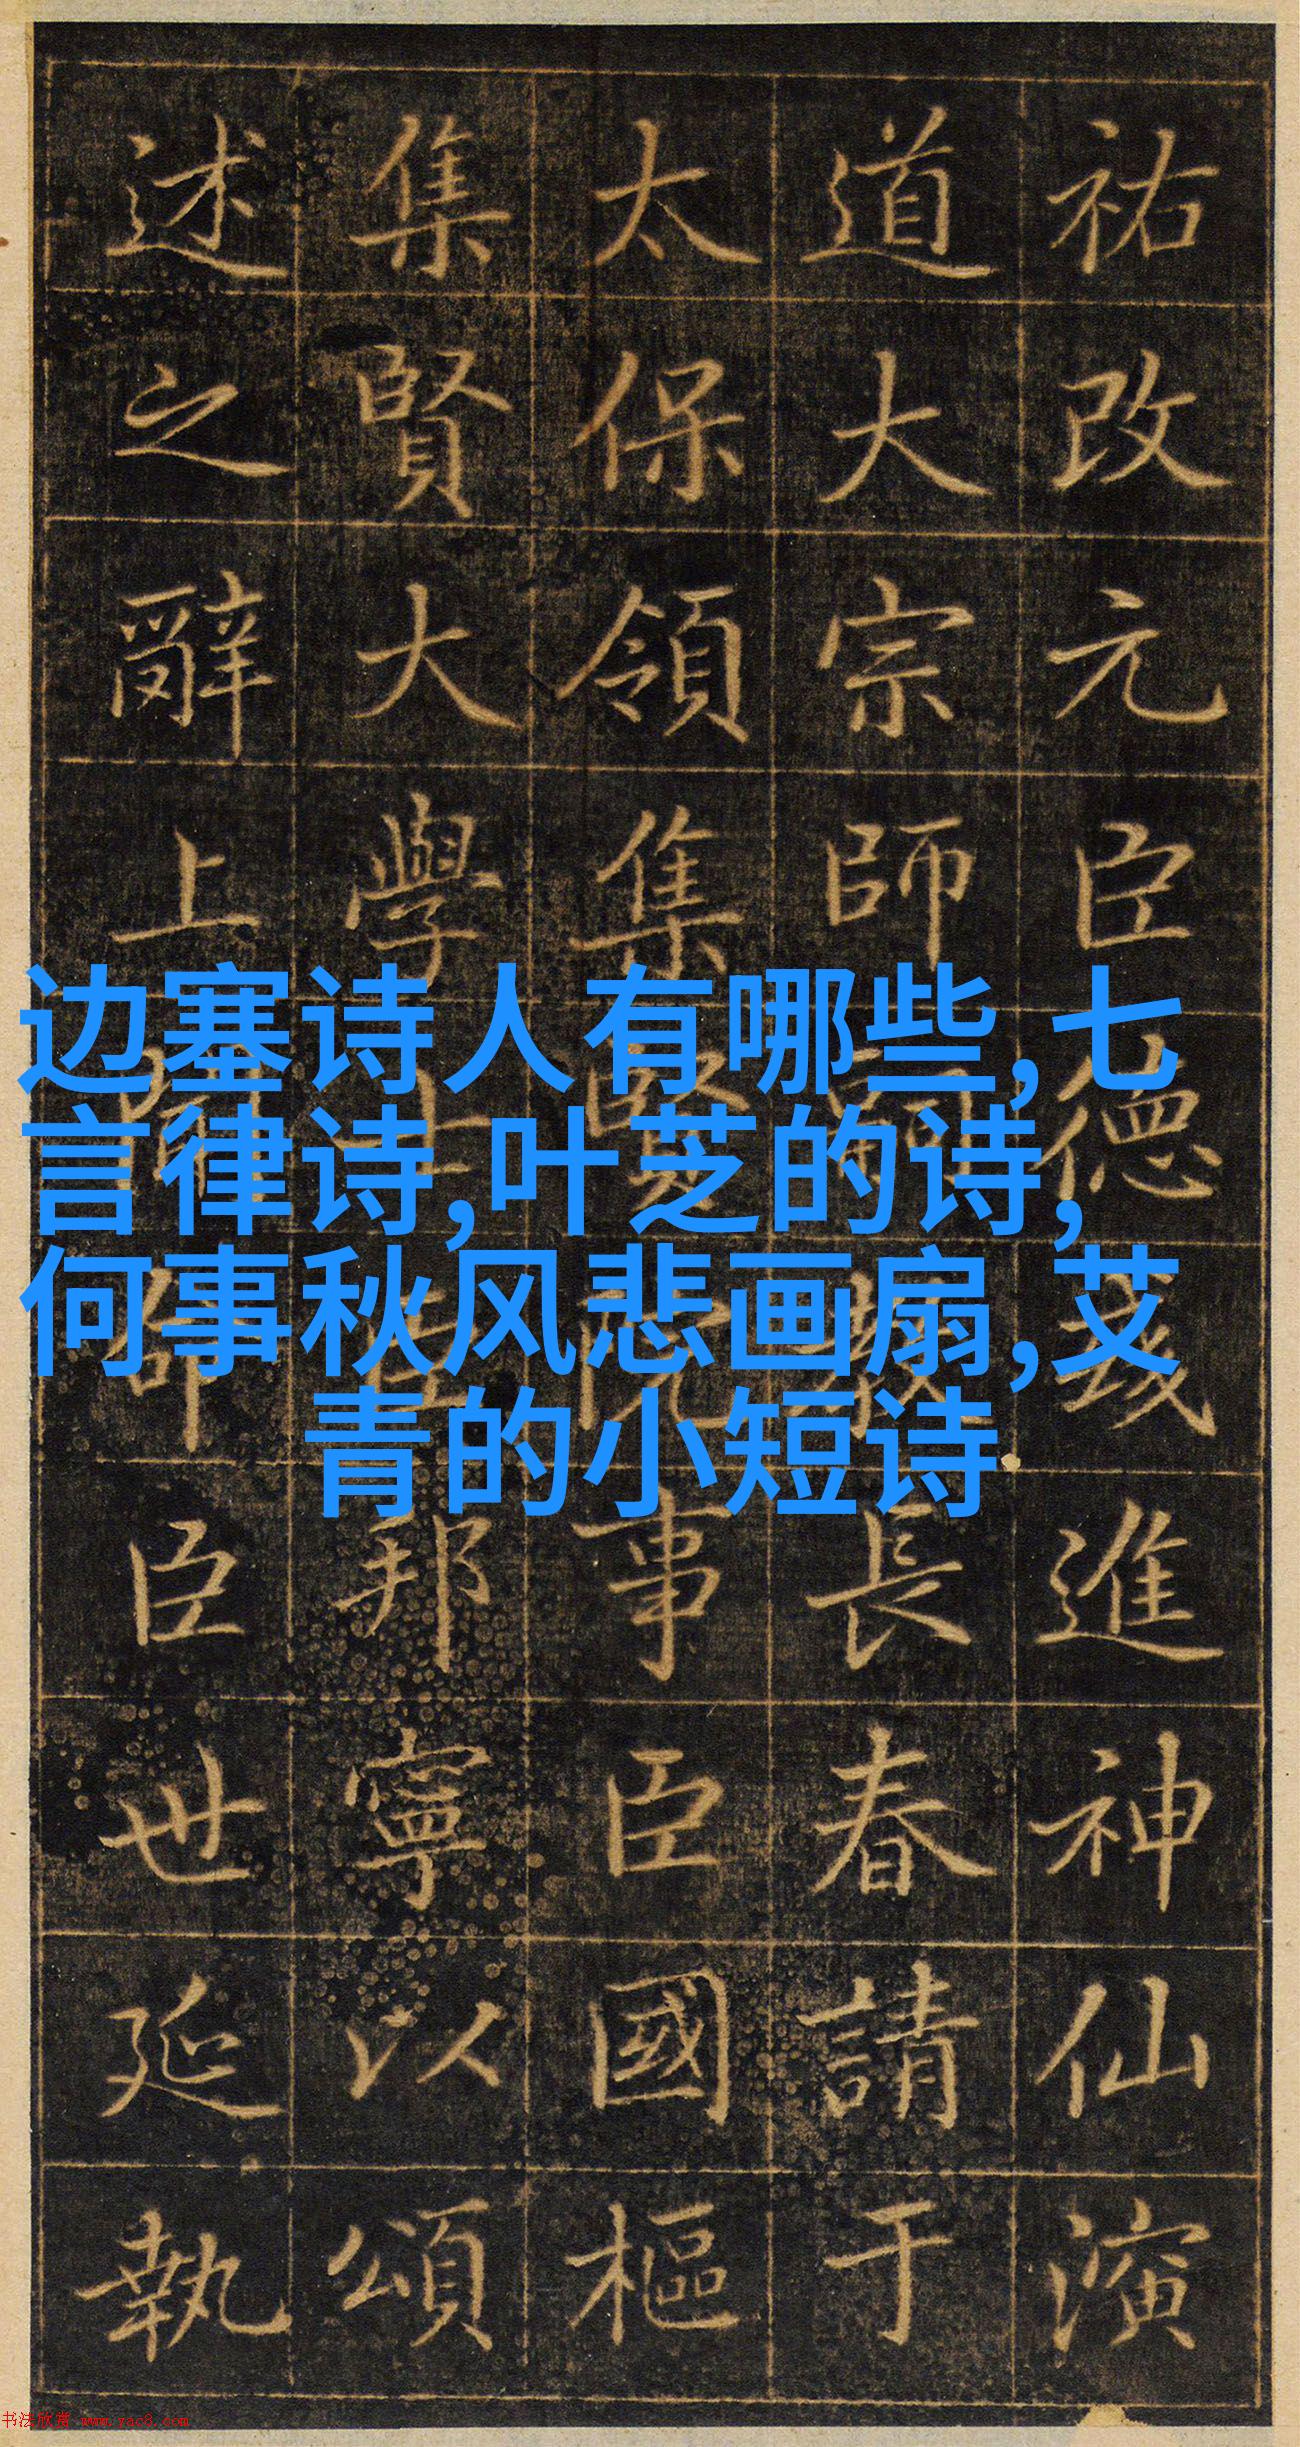 祐改元臣德進神仙演
道大宗師長春請于
太保領集賢院事臣國樞
集賢大學士臣邦寧以頌
述之辭上臣世延執
边塞诗人有哪些,七
言律诗,叶芝的诗,
何事秋风悲画扇,艾
青的小短诗
书法欣赏 www.yac8.com